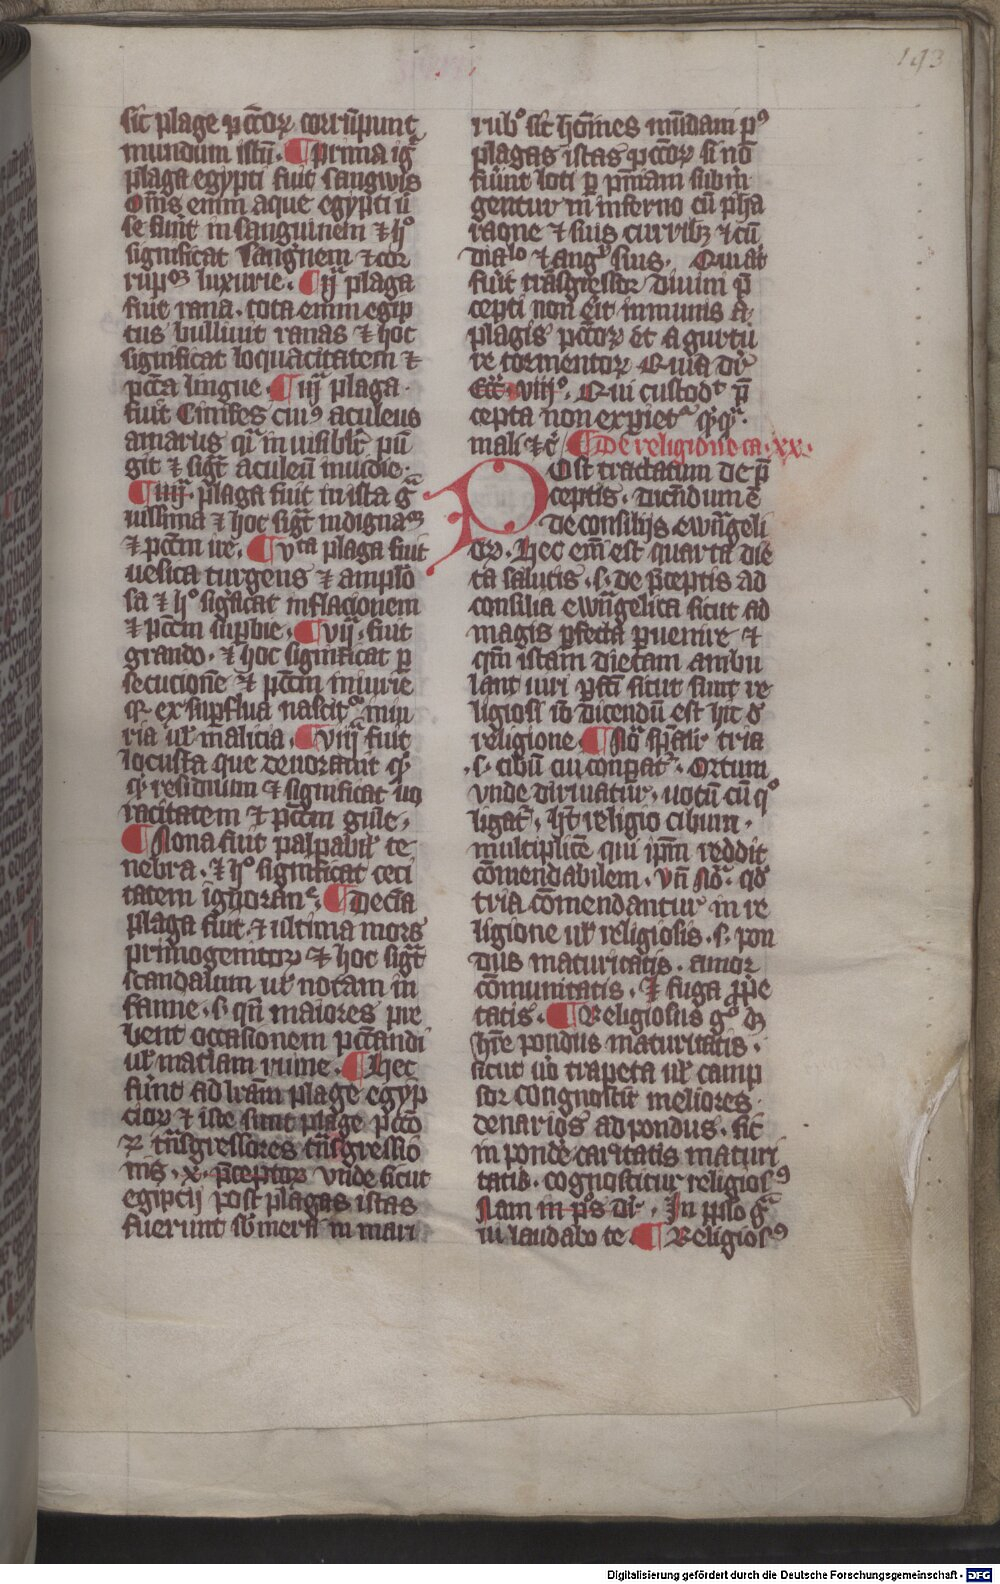 193
sic plage pcc̄oꝝ corrūpunt
mundum istū. ¶ prima igͥ
plaga egypti fuit sangwis
Om̄s enim aque egypti ū
se sūnt in sanguinem ⁊ hͦ
significat sangͥnem ⁊ cor
rupꝰᵐ luxurie. ¶ ijᵃ plaga
fuit rana. tota enim egip
tus bulliuit ranas ⁊ hoc
significat loquacitatem ⁊
pccā lingue. ¶ iijᵃ plaga.
fuit Cinifes ciuꝰ aculeus
amarus qͥ inuisibilr̄ pū
git ⁊ sigͭ aculeū inuidie.
¶ iiijᵃ. plaga fuit musca gͣ
uissima ⁊ hoc sigͭ indignaᵒᵐ
⁊ pccm̄ ire. ¶ vᵗᵃ plaga fuit
uesica turgens ⁊ amplo
sa ⁊ hͦ sigͥficat inflacionem
⁊ pccm̄ supbie. ¶ vijᵃ. fuit
grando. ⁊ hoc significat p̄
secucionē ⁊ pccm̄ iniurie
qꝛ ex supflua nascitꝰ iniu
ria ul̓ malicia. ¶ viijᵃ fuit
locusta que deuorauit qͥcqͥ
qͥ residuum ⁊ significat uo
racitatem ⁊ pccm̄ gule.
¶ Nona fuit palpabil̓ te
nebra. ⁊ hͦ significat ceci
tatem ignoranᵉ. ¶ Decīa
plaga fuit ⁊ ultima mors
primogenitoꝝ ⁊ hoc sigͭ
scandalum ul̓ notam in
famie. s. qn̄ maiores pre
bent occasionem pccandi
ul̓ mat̓iam ruine. ¶ Hec
sūnt ad lr̄am plage egyp
cioꝝ ⁊ iste sunt plage pccō
ꝝ tn̄sgressores tn̄sgressio
nis. x. p̄ceptoꝝ vnde sicut
egipcij post plagas istas
fuerunt sb̓mersi in mari
rubͦ sic hoīnes mūdani pꝰ
plagas istas pccōꝝ si nō
fūint loti per pn̄iam subm̄
gentur in inferno cū pha
raone ⁊ suis curribꝫ ⁊ cū
diaᵇˡᵒ ⁊ angͥˢ suis. Qui aūt
fuit trāsgressor diuini p̄
cepti non erit inmunis a
plagis pccōꝝ et a gurtu
re tormentoꝝ Quia dr̄
Ecc̄. viijͦ. Qui custodᵗ p̄
cepta non expietͣ qͥcqͣ.
mali ⁊c̄ ¶ De religione ca. xx.
Post tractatum de p̄
ceptis. dicendum ē
de consilijs ewn̄geli
cꝫ. Hec em̄ est quarta die
ta salutis. s. de p̄ceptis ad
consilia ewn̄gelica sicut ad
magis p̄fecta p̄uenire ⁊
qm̄ istam dietam ambu
lant uiri p̄fcī sicut sunt re
ligiosi iō dicendū est hic de
religione ¶ Noͣ sp̄alr̄ tria
.s. cibū cui conp̄atͣ. Ortum
vnde diriuatur. uotū cū qͦ
ligatͬ. hr̄ religio cibum.
multiplicē qui ipm̄ reddit
cōmendabilem. vn̄ Noͣ qd̓
tria cōmendantur in re
ligione ul̓ religiosis. s. pon
dus maturitatis. amor
cōmunitatis. ⁊ fuga ꝓprie
tatis. ¶ Religiosus gͦ dꝫ
hr̄e pondus maturitatis.
sicut ūo trapeta ul̓ camp
sor congnoscit meliores
denarios ad pondus. sic
in pondē caritatis maturi
tatis. cognoscitur religiosꝰ
Nam in pͦs dr̄. In pp̄lo gͣ
ui laudabo te. ¶ Religiosꝰ
Digitalisierung gefördert durch die Deutsche Forschungsgemeinschaft - DFG